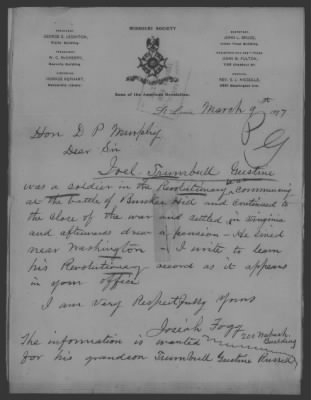 MISSOURI SOCIETY
PRESIDENT
GEORGE E. LEIGHTON,
VICE-PRESIDENT
W. C. McCREERY,
Security Building
HISTORIAN
GEORGE GEPHART,
SECRETARY
JOHN L. BRUCE,
Union Trust Building.
JOHN N. FULTON,
REV. S. J. NICCOLLS,
Sons of the American Revolution.
St Louis March 9th '97
P G
Hon D P Murphy
Dear Sir
Joel Trumbull Gustine
was a soldier in the Revolutionary War Commencing
at the battle of Buncker Hill and continued to
the close of the war and settled in Virginia
and afterwards drew a pension - He lived
near Washington - I write to learn
his Revolutionary record as it appears
in your office
I am Very Respectfully Yours
Josiah Fogg
Building
The information is wanted
for his grandson Trumbull Gustine Russell